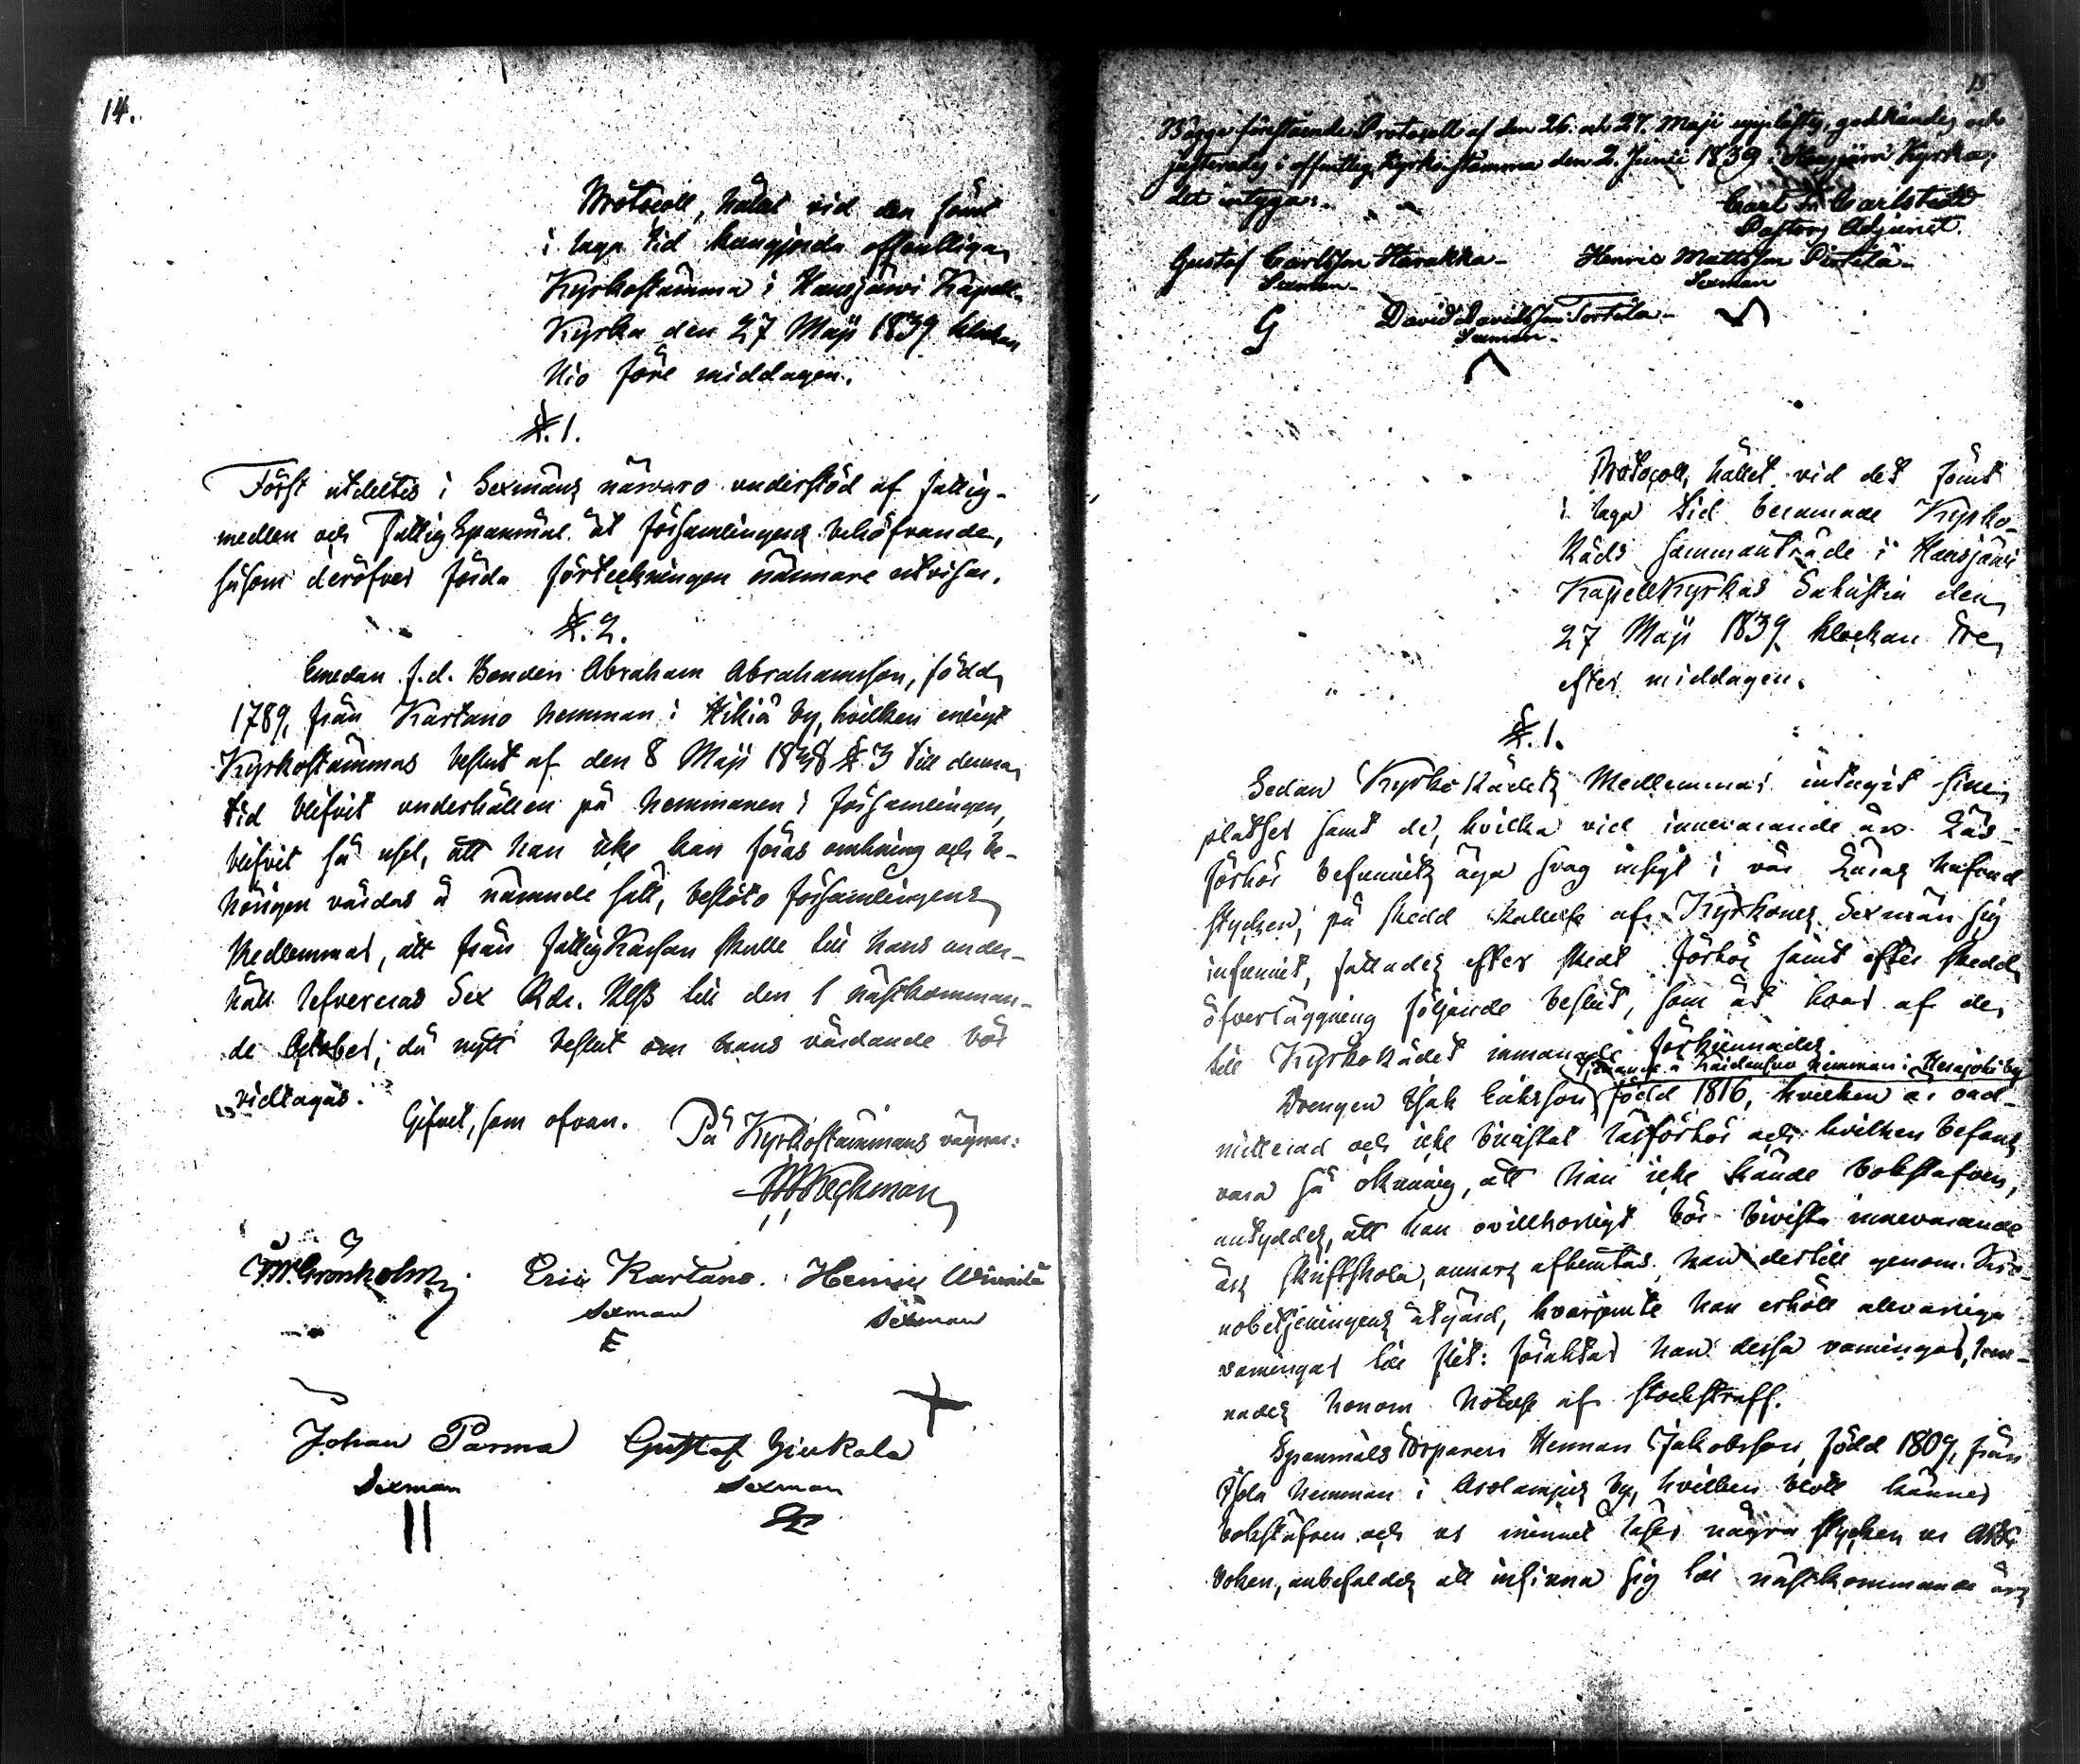 14.
Protocoll, hållet vid den samt
i laga tid kungjorda offentliga
Kyrkostämma i Hausjärvi Kapell-
Kyrka den 27 Maji 1839 klockan
Nio före middagen.
§. 1.
Först utdeltes i Sexmäns närvaro understöd af fattig-
medlen och Fattig Spanmål åt församlingens behöfvande,
såsom deröfver förda förteckningen närmare utvisar.
§. 2.
Emedan f.d. Bonden Abraham Abrahamsson, född
1789, från Kartano hemman i Hikiä by, hvilken enligt
Kyrkostämmas beslut af den 8 Maji 1838 §. 3 till denna
tid blifvit underhållen på hemmanen i församlingen,
blifvit så usel, att han icke kan föras omkring och be-
hörigen vårdas å nämnde sätt, beslöto församlingens
Medlemmar, att från fattig Kassan skulle till hans under-
håll lefvereras Sex Rdr. till den 1 nästkomman-
de October, då nytt beslut om hans vårdande bör
vidtagas.
Gifvet, som ofvan. På Kyrkostämmans vägnar:
Grönholm Eric Kartano. Henric
Sexman Sexman
E
Johan Parma Gustaf
Sexman Sexman
15
Bägge förestående Protocoll af den 26. och 27. Maji upplästes, godkändes och
justerades i offentlig Kyrkostämma den 2. Junii 1839 i Hausjärvi Kyrka;
det intygar.
Carl Fr. Carlstedt
Pastors Adjunct.
Gustaf Carlsson Harakka Henric Mattsson Pirttilä
Sexman Sexman
G David Davidsson Torttila
Sexman
Protocoll, hållet vid det samt
i laga tid beramade Kyrko-
Råds sammanträde i Hausjärvi
KapellKyrkas Sakristia den
27 Maji 1839 klockan Tre
efter middagen.
§. 1.
Sedan Kyrko Rådets Medlemmar intagit sine
platser samt de, hvilka vid innevarande års Läs-
förhör befunnits äga svag insigt i vår Läras hufvud
stycken, på skedd kallelse af Kyrkones Sexmän sig
infunnit, fattades efter skedt förhör samt efter skedd
öfverläggning följande beslut, som åt hvar af de
till Kyrko Rådet inmanade förkunnades.
tjenande å hemman i Herajoki by
Drengen Isak Eriksson född 1816, hvilken är oad-
mitterad och icke bivistat läsförhör och hvilken befans
vara så okunnig, att han icke kände bokstafven,
antyddes, att han ovillkorligt bör bivista innevarande
års skriftskola, annars afhemtas han dertill genom Kro-
nobetjeningens åtgärd, hvarjemte han erhöll allvarliga
varningar till flit: föraktar han dessa varningar,
nades honom hotelse af stockstraff.
Spanmåls Torparen Herman Jakobsson, född 1809, från
hemman i by, hvilken blott känner
bokstäfven och ur minnet läser några stycken ur ABC
boken, anbefaldes att infinna sig till nästkommande års